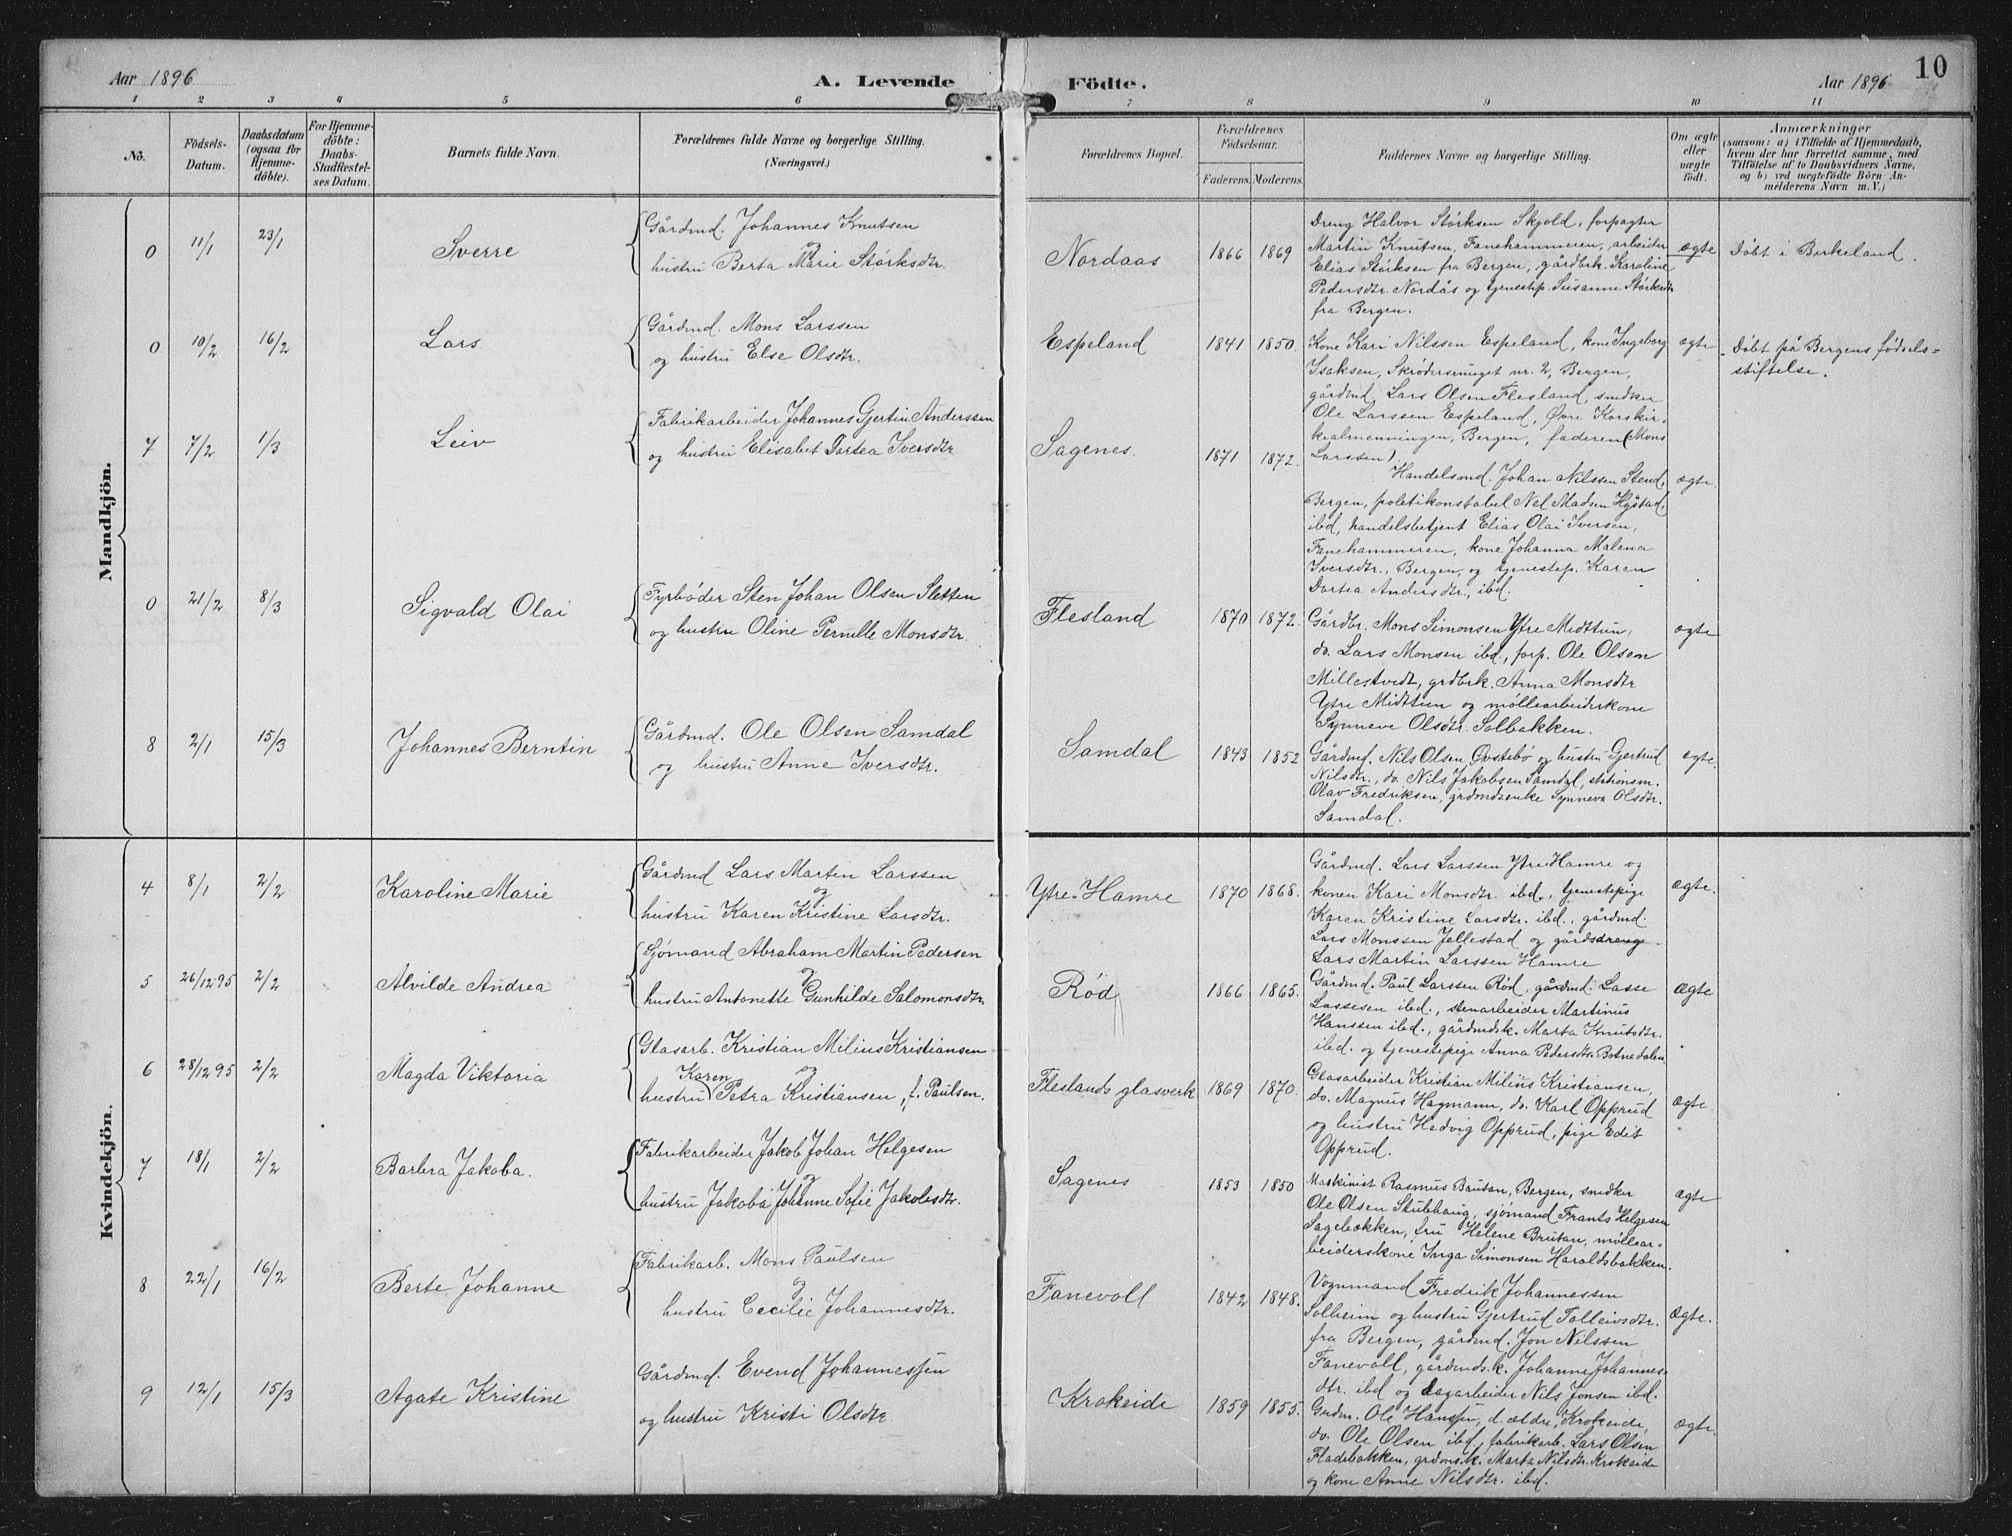 Aar 1896
A. Levende
Födte.
Aar 1896
10
1 2 3 4 5 6 7 8 9 10 11
No.
Födsels-
Datum.
Daabsdatum
(ogsaa for
Hjemme-
döbte).
For Hjemme-
döbte:
Daabs-
Stadfæstel-
ses Datum.
Barnets fulde Navn.
Forældrenes fulde Navne og borgerlige Stilling.
(Næringsvei.)
Forældrenes Bopæl.
Forældrenes
Födselsaar.
Faderens. Moderens.
Faddernes Navne og borgerlige Stilling.
Om ægte
eller
uægte
födt.
Anmærkninger
(saasom: a) i Tilfælde af Hjemmedaab,
hvem der har forrettet samme, med
Tilföielse af to Daabsvidners Navne,
og b) ved uægtefödte Börn An-
melderens Navn m. V.)
Mandkjön.
0 11/1 23/1 Sverre
Gårdmd. Johannes Knutsen
og
hustru Berta Marie Størksdtr.
Nordaas 1866 1869
Dreng Halvor Størksen Skjold, forpagter
Martin Knutsen, Fanehammeren, arbeider
Elias Størksen fra Bergen, gårdbrk. Karoline
Pedersdtr. Nordås og tjenestep. Susanne Størksdtr
fra Bergen.
ægte
Døbt i Birkeland.
0 10/2 16/2 Lars
Gårdmd. Mons Larssen
og hustru Else Olsdtr.
Espeland 1841 1850.
Kone Kari Nilssen Espeland, kone Ingeborg
Isaksen, Skrødersmuget nr. 2, Bergen,
gårdmd. Lars Olsen Flesland, smedken
Ole Larssen Espeland, Øvre Korskir-
kealmenningen, Bergen, faderen (Mons
Larssen).
ægte
Døbt på Bergens fødsels-
stiftelse.
7 7/2 1/3 Leiv
Fabrikarbeider Johannes Gjertin Anderssen
og hustru Elisabet Dortea Iversdtr
Sagenes. 1871 1872.
Handelsmd. Johan Nilssen Stend,
Bergen, politikonstabel Nel Madsen Hystad,
ibd, handelsbetjent Elias Olai Iversen,
Fanehammeren, kone Johanna Malena
Iversdtr., Bergen, og tjenestep. Karen
Dortea Andersdtr., ibd.
ægte
0 21/2 8/3 Sigvald Olai
Fyrbøder Sten Johan Olsen Sletten
og hustru Oline Pernille Monsdtr.
Flesland 1870 1872.
Gårdbr. Mons Simonsen Ytre Midttun,
do. Lars Monsen ibd., forp. Ole Olsen
Millestvedt, grdbrk. Anna Monsdtr
Ytre Midttun og møllearbeiderskone
Synneve Olsdtr. Solbakken.
ægte
8 2/1 15/3 Johannes Berntin
Gårdmd. Ole Olsen Samdal
og hustru Anne Iversdtr.
Samdal 1843 1852
Gårdmd. Nils Olsen Øvstebø og hustru Gjertrud
Nilsdtr., do. Nils Jakobsen Samdal, stationsm.
Olav Fredriksen, grdmdsenke Synneva Olsdtr.
Samdal.
ægte.
Kvindekjön.
4 8/1 2/2 Karoline Marie
Gårdmd Lars Martin Larssen
og
hustru Karen Kristine Larsdtr.
Ytre-Hamre 1870 1868.
Gårdmd. Lars Larssen Ytre Hamre og
konen Kari Monsdtr. ibd., tjenestepige
Karen Kristine Larsdtr. ibd., gårdmd.
Lars Monssen Jellestad og gårdsdreng
Lars Martin Larssen Hamre
ægte.
5 26/12 95 2/2 Alvilde Andrea
Sjømand Abraham Martin Pedersen
og
hustru Antonette Gunhilde Salomonsdtr.
Rød 1866 1865.
Gårdmd. Paul Larssen Rød, gårdmd. Lasse
Lassesen ibd., stenarbeider Martinus
Hanssen ibd., gårdmdsk. Marta Knutsdtr.
ibd. og tjenestepige Anna Pedersdtr. Botnedalen
ægte
6 28/12 95 2/2 Magda Viktoria
Glasarb. Kristian Milius Kristiansen
Karen og
hustru Petra Kristiansen, f. Paulsen.
Fleslands glasverk 1869 1870.
Glasarbeider Kristian Milius Kristiansen,
do. Magnus Hagmann, do. Karl Opprud
og hustru Hedvig Opprud, pige Edit
Opprud.
ægte.
7 18/1 2/2 Barbra Jakoba.
Fabrikarbeider Jakob Johan Helgesen
og
hustru Jakoba Johanne Sofie Jakobsdtr.
Sagenes 1853 1850
Maskinist Rasmus Brutan, Bergen, smedker
Ole Olsen Stubhaug, sjømand Frants Helgesen
Sagebakken, fru Helene Brutan, møllear-
beiderskone Inga Simonsen Haraldsbakken.
ægte
8 22/1 16/2 Berte Johanne
Fabrikarb. Mons Paulsen
og
hustru Cecilie Johannesdtr.
Fanevoll 1842 1848.
Vognmand Fredrik Johannessen
Solheim og hustru Gjertrud Tolleivsdtr.
fra Bergen, gårdmd. Jon Nilssen
Fanevoll, gårdmds.k. Johanne Johannes-
dtr. ibd og dagarbeider Nils Jonsen ibd.
ægte.
9 12/1 15/3 Agate Kristine
Gårdmd. Evend Johannessen
og hustru Kristi Olsdtr
Krokeide 1859 1855.
Grdm. Ole Hanssen, d. ældre, Krokeide,
do. Ole Olsen ibd, fabrikarb. Lars Olsen
Fladebakken, grdmdsk. Marta Nilsdtr. Krokeide
og kone Anne Nilsdtr. ibd.
ægte.